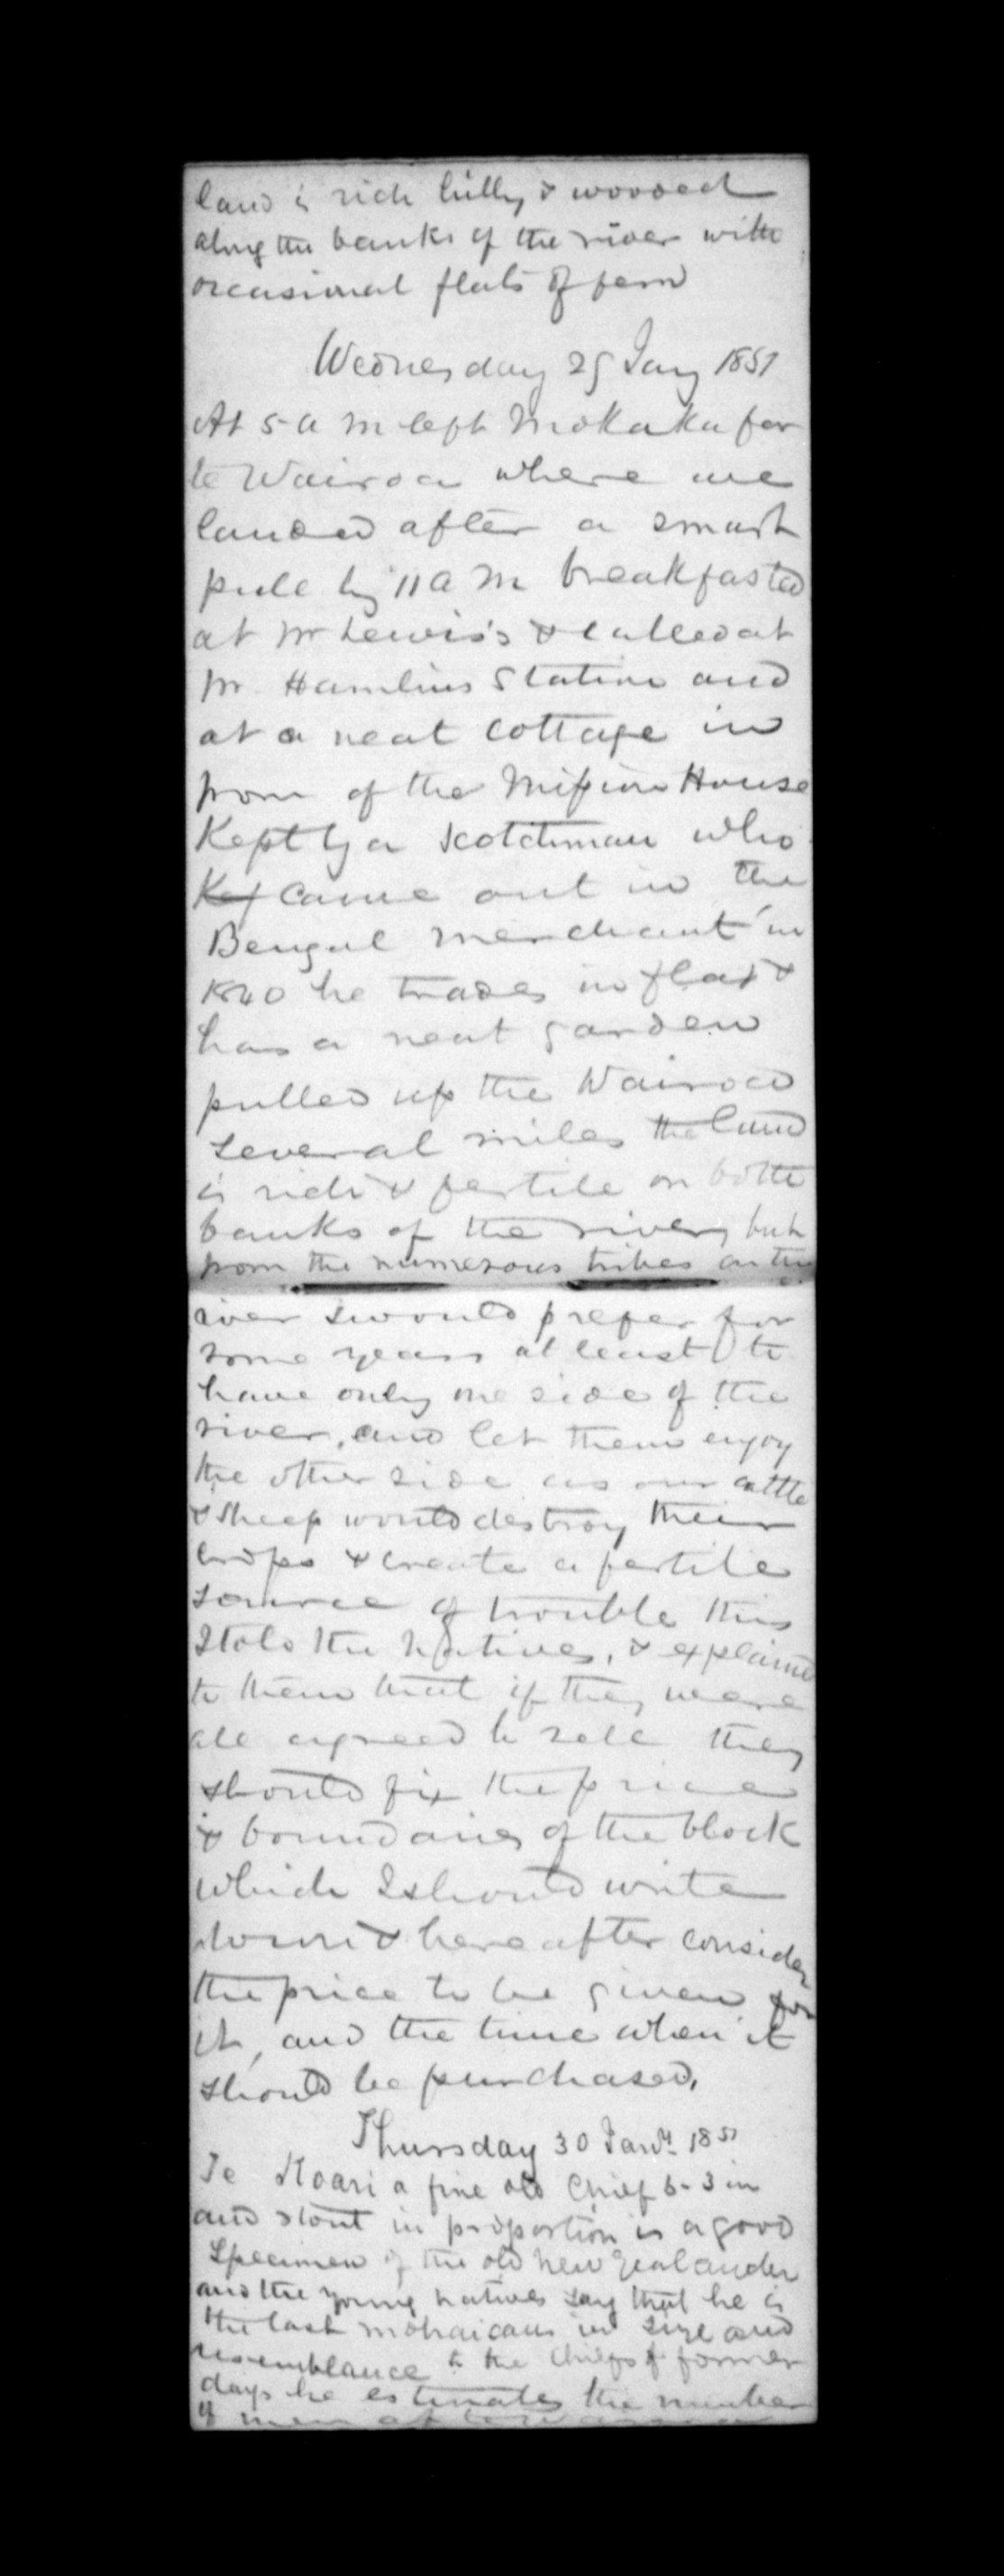 land is rich hilly & wooded
along the banks of the river with
occasional flats of fern
Wednesday 29 Jany 1851
At 5 a m left Mokaka for
te Wairoa where we
landed after a smart
pull by 11 a m breakfasted
at Mr Lewis's & called at
Mr Hamlins Station and
at a neat cottage in
front of the Mission House
Kept by a Scotchman who
Kep came out in the
Bengal Merchant in
1840 he trades in flax &
has a neat garden
pulled up the Wairoa
several miles the land
is rich & fertile on both
banks of the river, but
from the numerous tribes on the
river I would prefer for
some years at least to
have only one side of the
river, and let them enjoy
the other side as our cattle
& sheep would destroy their
crops & create a fertile
source of trouble this
I told the Natives, & explained
to them that if they were
all agreed to sell they
should fix the price
& boundaries of the block
which I should write
down & hereafter consider
the price to be given for
it, and the time when it
should be purchased.
Thursday 30 Jany 1851
Te Koari a fine old Chief 6-3 in
and stout in proportion is a good
Specimen of the old New Zealander
and the young natives say that he is
the last mohaicans in size and
resemblance to the Chiefs of former
days he estimates the number
of men at